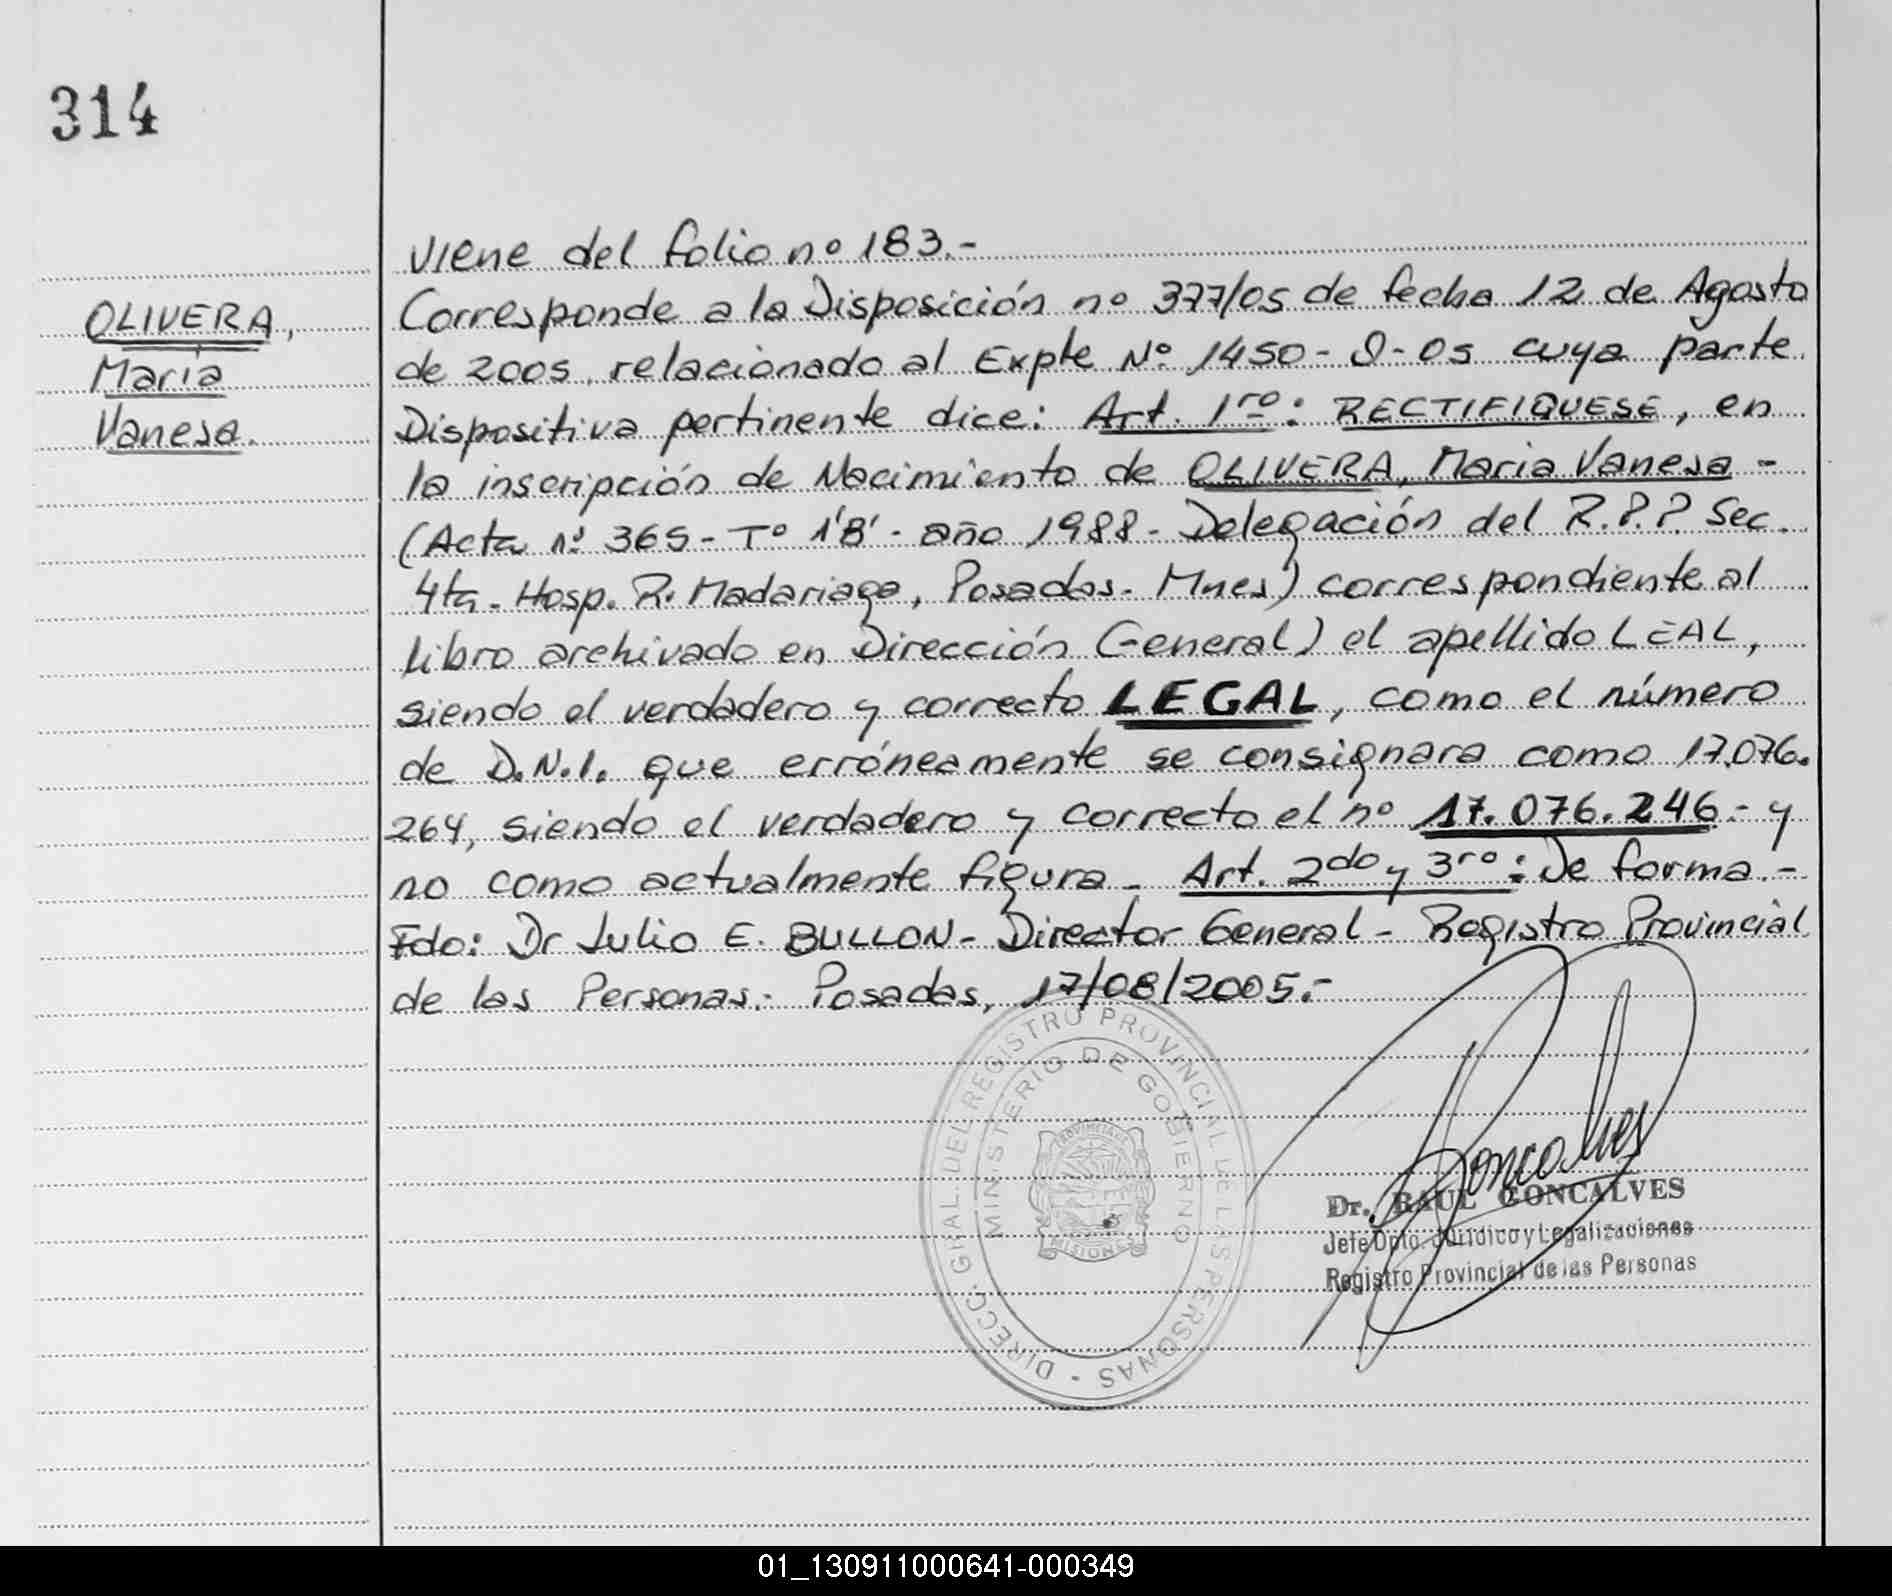 314
OLIVERA,
Maria
Vanesa.
Viene del folio nº 183.-
Corresponde a la Disposición nº 377/05 de fecha 12 de Agosto
de 2005, relacionado al Expte Nº 1450- -05 cuya parte
Dispositiva pertinente dice: Art. 1ro: RECTIFIQUESE, en
la inscripción de Nacimiento de OLIVERA, Maria Vanesa -
(Acta nº 365- Tº 1'B'- año 1988- Delegación del R.P.P Sec.
4ta- Hosp. R. Madariaga, Posadas- Mnes) correspondiente al
libro archivado en Dirección General) el apellido LEAL,
siendo el verdadero y correcto LEGAL, como el número
de D.N.I. que erróneamente se consignara como 17.076.
264, siendo el verdadero y correcto el nº 17.076.246.- y
no como actualmente figura- Art. 2do y 3ro: De forma.-
Fdo: Dr Julio E. BULLON- Director General- Registro Provincial
de las Personas.- Posadas, 17/08/2005.-
DIRECC. GRAL. DEL REGISTRO PROVINCIAL DE LAS PERSONAS -
MINISTERIO DE GOBIERNO
PROVINCIA DE
MISIONES
Goncalves
Dr. RAUL GONCALVES
Jefe Dpto. Jurídico y Legalizaciones
Registro Provincial de las Personas
01_130911000641-000349